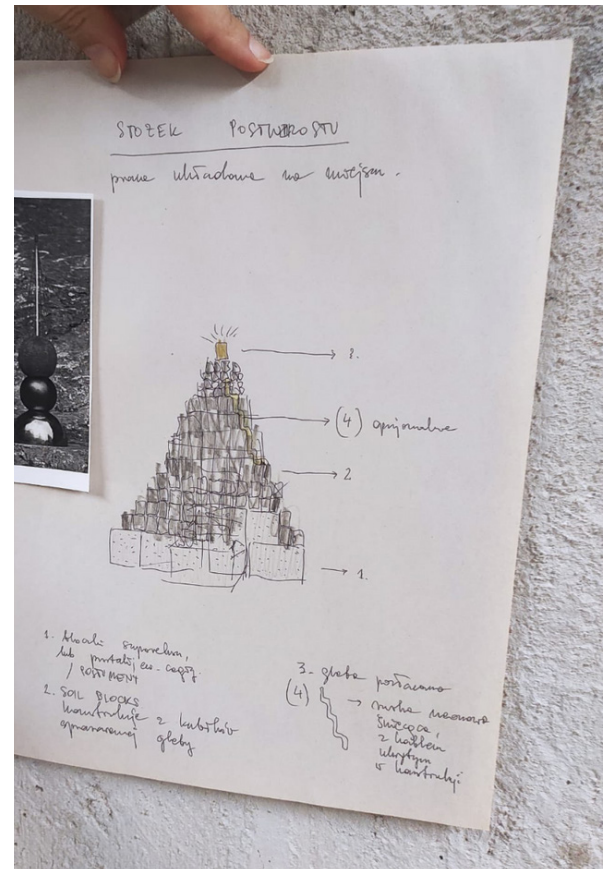 STOŻEK POSTWZROSTU
praca układana na miejscu.
3.
(4) opcjonalne
2
1.
1. bloczki
lub
/ POSTUMENT
2. SOIL BLOCKS
konstrukcje z kubików
gleby
3. gleba pozłacana
(4) → rurka neonowa
świecąca,
z kablem
ukrytym
w konstrukcji